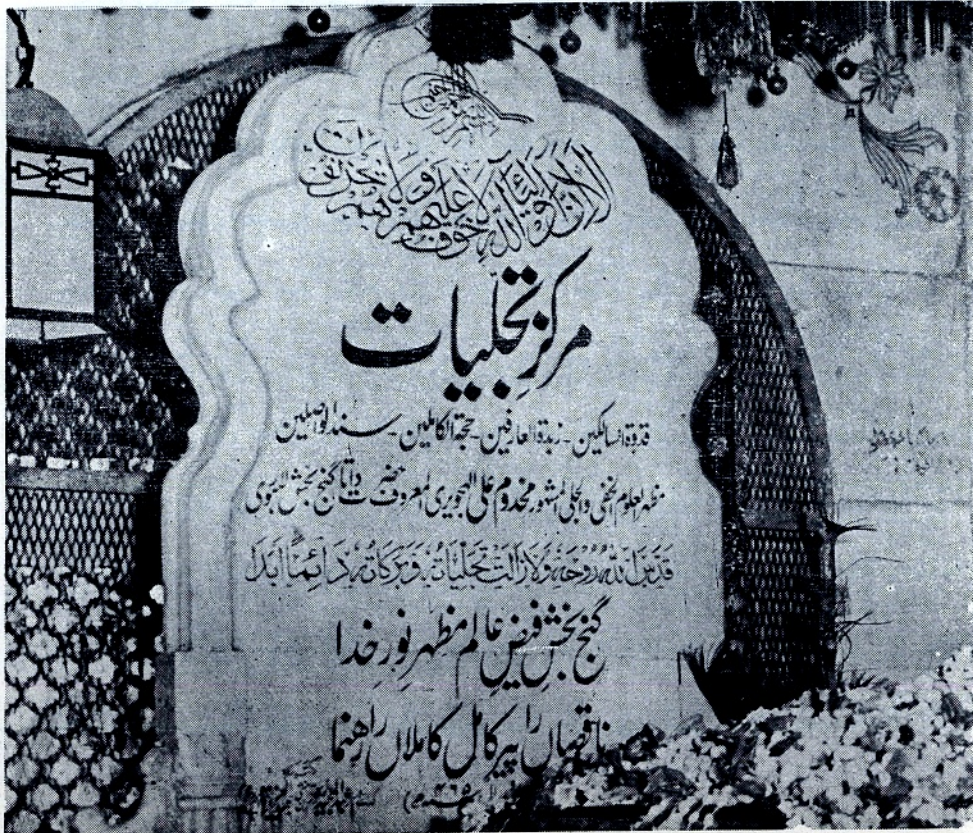 بسم الله الرحمن الرحيم
الا ان اولياء الله لا خوف عليهم ولا هم يحزنون
مرکزِ تجلیات
قدوة السالکین - زبدة العارفین - حجة الکاملین - سند الواصلین
مظہر العلوم الخفی والجلی المشہور مخدوم علی الہجویری المعروف حضرت داتا گنج بخش الغزنوی
قَدَّسَ اللهُ رُوْحَهٗ وَلَا زَالَتْ تَجَلِّيَاتُهٗ وَبَرَكَاتُهٗ دَائِمًا اَبَدًا
گنج بخشِ فیضِ عالم مظہرِ نورِ خدا
ناقصاں را پیرِ کامل کاملاں را راہنما